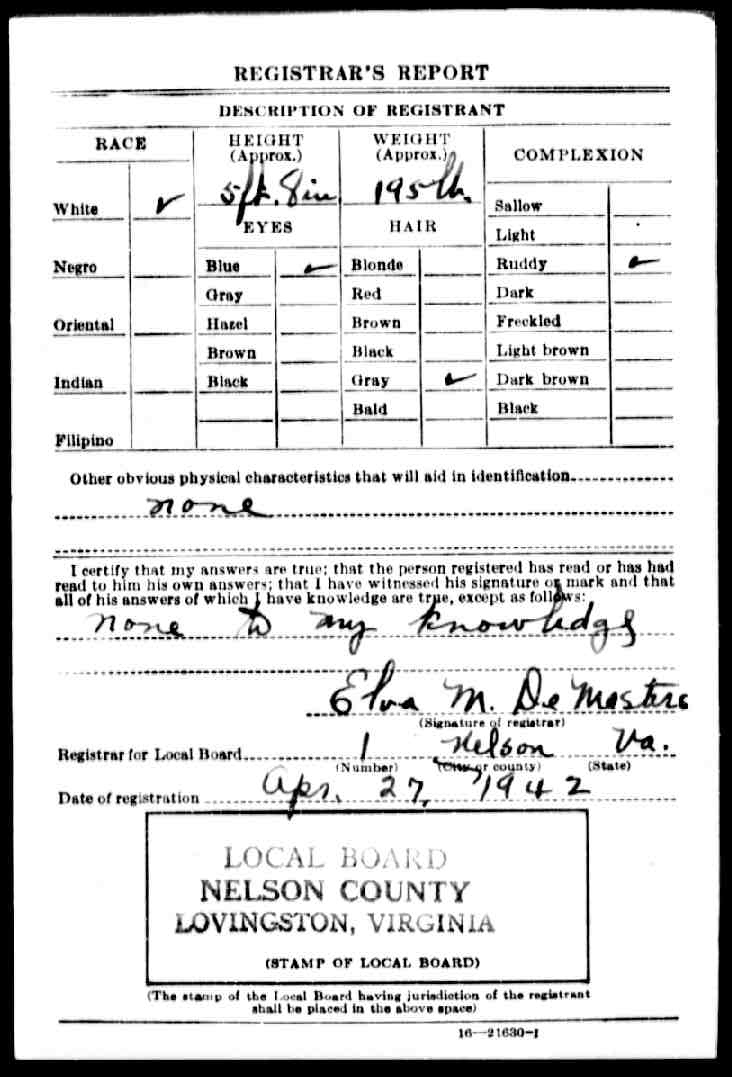 REGISTRAR'S REPORT
DESCRIPTION OF REGISTRANT
RACE HEIGHT (Approx.) WEIGHT (Approx.) COMPLEXION
5 ft. 8 in 195 lb.
White ✓ EYES HAIR Sallow
Light
Negro Blue ✓ Blonde Ruddy ✓
Gray Red Dark
Oriental Hazel Brown Freckled
Brown Black Light brown
Indian Black Gray ✓ Dark brown
Bald Black
Filipino
Other obvious physical characteristics that will aid in identification
none
I certify that my answers are true; that the person registered has read or has had
read to him his own answers; that I have witnessed his signature or mark and that
all of his answers of which I have knowledge are true, except as follows:
none to my knowledge
Elva M. DeMasters
(Signature of registrar)
Registrar for Local Board 1 Nelson Va.
(Number) (City or county) (State)
Date of registration Apr. 27, 1942
LOCAL BOARD
NELSON COUNTY
LOVINGSTON, VIRGINIA
(STAMP OF LOCAL BOARD)
(The stamp of the Local Board having jurisdiction of the registrant
shall be placed in the above space)
16—21630-1